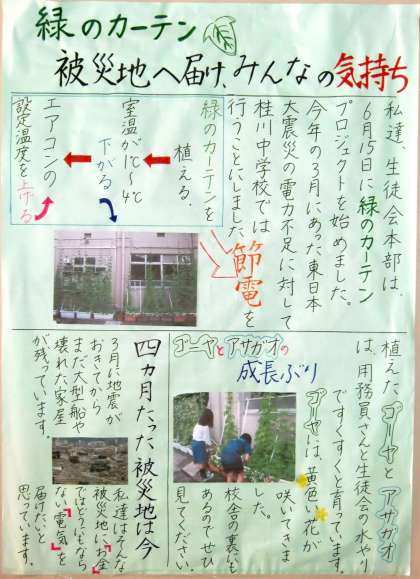 緑のカーテン
被災地へ届け、みんなの気持ち
私達、生徒会本部は、
6月15日に緑のカーテン
プロジェクトを始めました。
今年の3月にあった東日本
大震災の電力不足に対して
桂川中学校では節電を
行うことにしました
緑のカーテンを
植える、
室温が1℃〜4℃
下がる
エアコンの
設定温度を上げる
ゴーヤとアサガオの
成長ぶり
植えたゴーヤとアサガオ
は、用務員さんと生徒会の水やり
ですくすくと育っています。
ゴーヤは、黄色い花が
咲いてきま
した。
校舎の裏にも
あるのでぜひ
見てください。
四カ月たった被災地は今
3月に地震が
おきてから
まだ大型船や
壊れた家屋
が残っています。
私達はそんな
被災地に「お金」
ではどうにもなら
ない「電気」を
届けたいと
思っています。